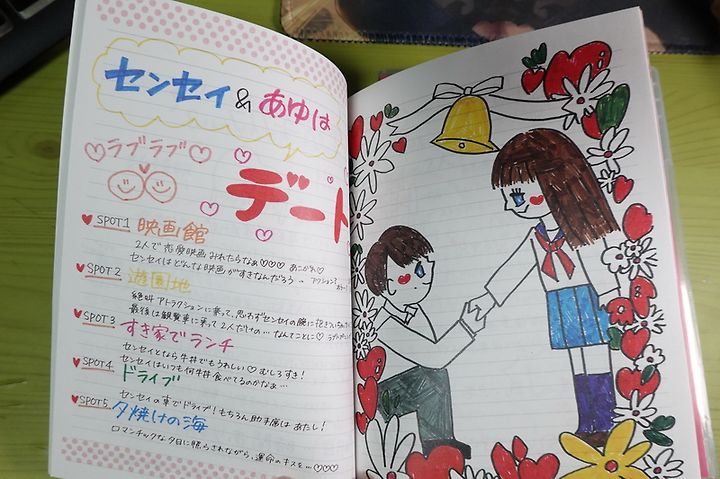 センセイ&あゆは
ラブラブ
デート
SPOT1 映画館
2人で恋愛映画みれたらなぁ♡♡♡ あこがれ♡
センセイはどんな映画がすきなんだろう
SPOT2 遊園地
絶叫アトラクションに乗って、思わずセンセイの腕に抱きついちゃ
最後は観覧車に乗って2人だけの…なんてことに♡
SPOT3 すき家でランチ
センセイとなら牛丼でもうれしい♡むしろすき!
センセイはいつも何牛丼食べてるのかなぁ…
SPOT4 ドライブ
センセイの車でドライブ!もちろん助手席はあたし!
SPOT5 夕焼けの海
ロマンチックな夕日に照らされながら、運命のキスを…♡♡♡